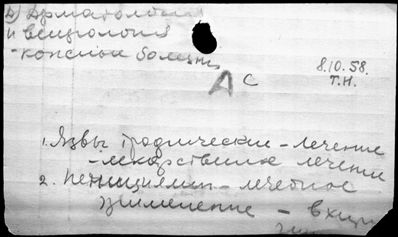 2) Дерматология
и венерология
- кожные болезни
А с
8.10.58.
Т.Н.
1. Язвы трофические - лечение
- лекарственное лечение
2. Пенициллин - лечебное
применение - в хир